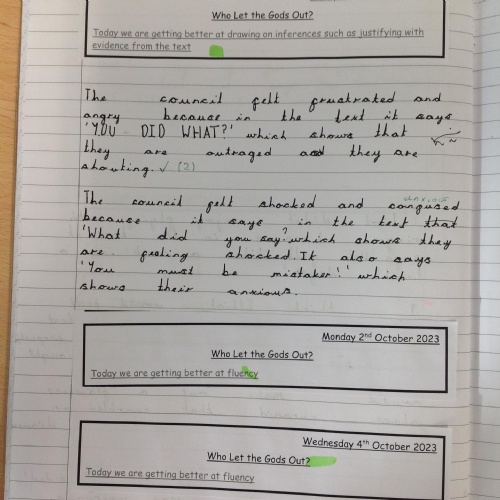 Who Let the Gods Out?
Today we are getting better at drawing on inferences such as justifying with
evidence from the text
The council felt frustrated and
angry because in the text it says
'YOU DID WHAT?' which shows that
they are outraged and they are
shouting. ✓ (2)
anxious
The council felt shocked and confused
because it says in the text that
'What did you say?' which shows they
are feeling shocked. It also says
'You must be mistaken!' which
shows their anxious.
Monday 2nd October 2023
Who Let the Gods Out?
Today we are getting better at fluency
Wednesday 4th October 2023
Who Let the Gods Out?
Today we are getting better at fluency